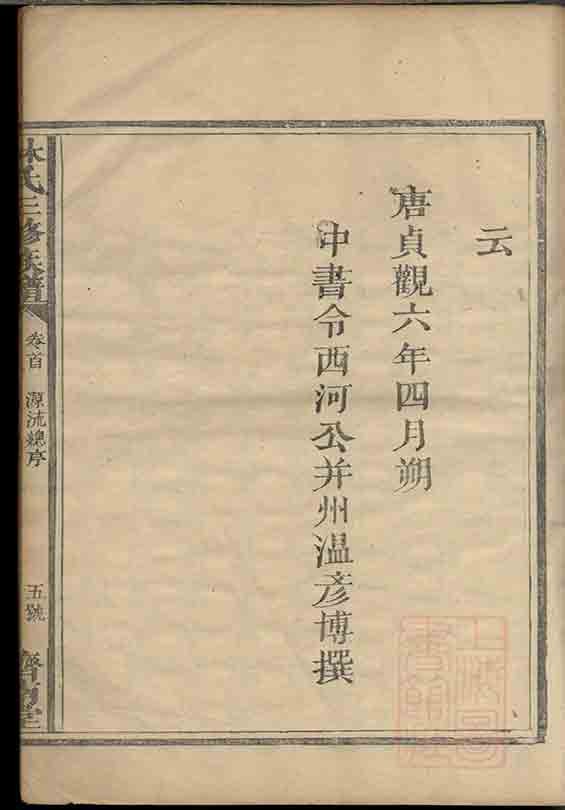 云
唐貞觀六年四月朔
中書令西河公并州溫彦博撰
林氏三修族譜
卷首 源流總序
五號
濟南堂
上海圖書館藏